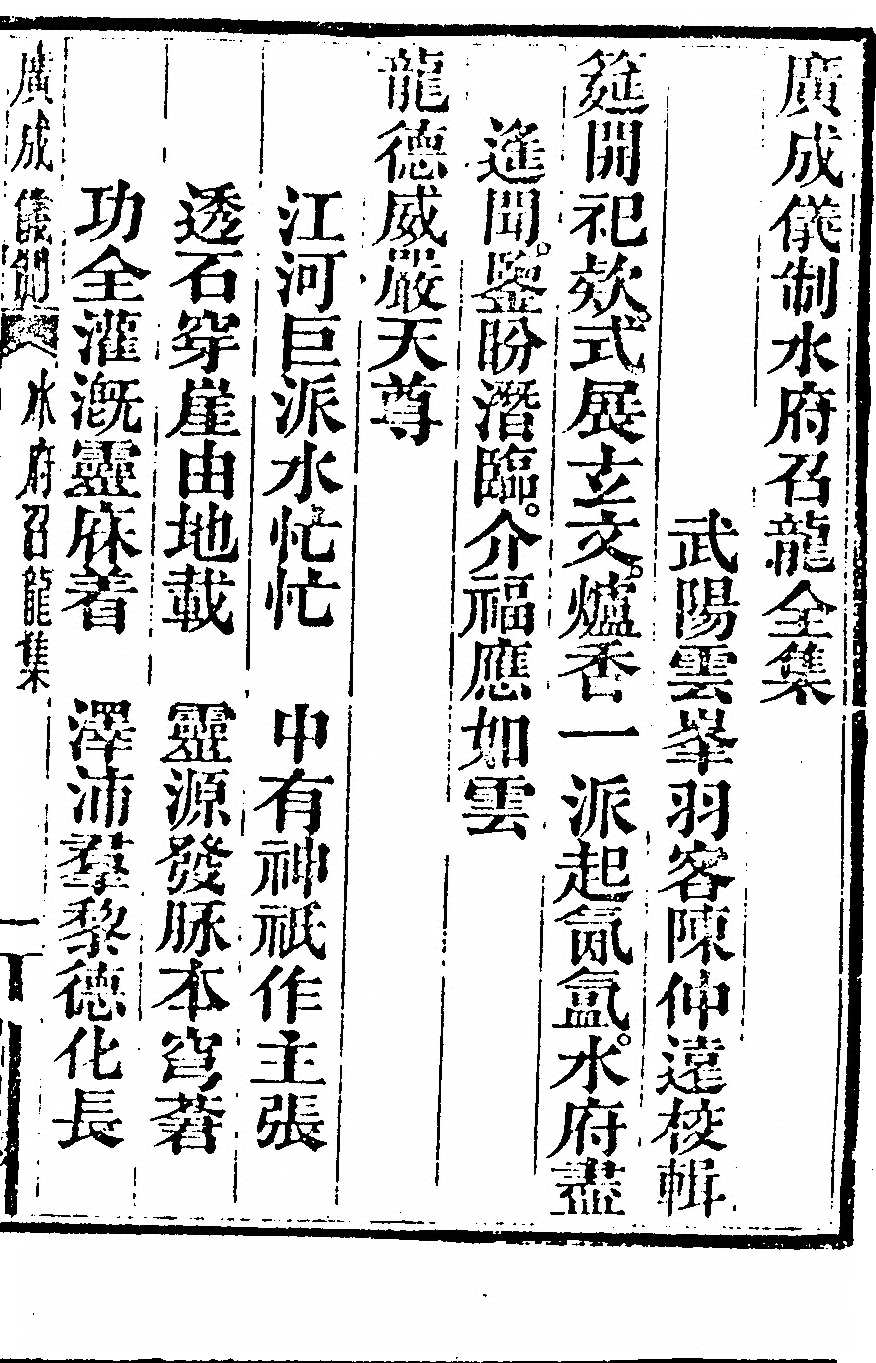 廣成儀制水府召龍全集
武陽雲峯羽客陳仲遠校輯
筵開祀欵。式展玄文。爐香一派起氤氳。水府盡
遙聞。鑒盼潛臨。介福應如雲
龍德威嚴天尊
江河巨派水忙忙　中有神祇作主張
透石穿崖由地載　靈源發脉本穹蒼
功全灌溉靈庥着　澤沛羣黎德化長
廣成儀制　水府召龍集　一